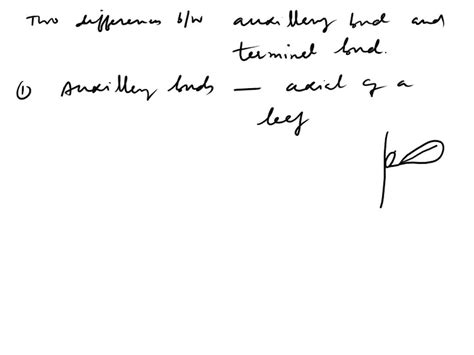 Two differences b/w auxillery bud and
terminel bud.
① Auxillery buds — axial of a
leef